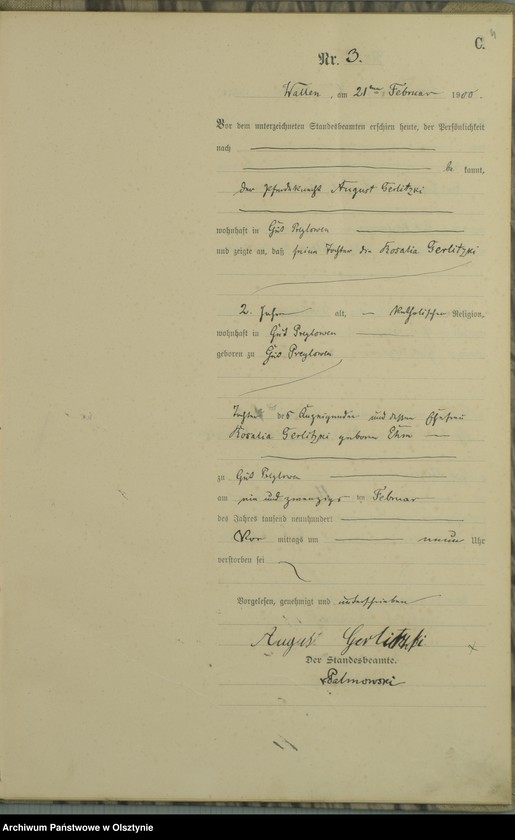 C.
Nr. 3.
Wallen, am 21ten Februar 1900.
Vor dem unterzeichneten Standesbeamten erschien heute, der Persönlichkeit
nach
be kannt,
der Pferdeknecht August Gerlitzki
wohnhaft in Gut Preylowen
und zeigte an, daß seine Tochter die Rosalia Gerlitzki
2. Jahre alt, katholischer Religion,
wohnhaft in Gut Preylowen
geboren zu Gut Preylowen
Tochter des Anzeigenden und dessen Ehefrau
Rosalia Gerlitzki geborene
zu Gut Preylowen
am ein und zwanzigs ten Februar
des Jahres tausend neunhundert
Vor mittags um neun Uhr
verstorben sei
Vorgelesen, genehmigt und unterschrieben
August Gerlitzki
Der Standesbeamte.
Palmowski
Archiwum Państwowe w Olsztynie